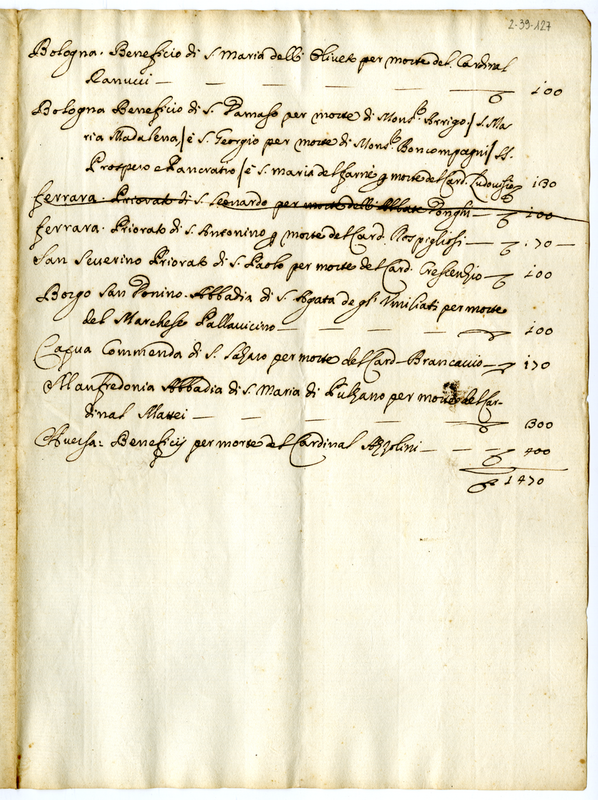 2-39-127
Bologna. Beneficio di S. Maria delli Oliveto per morte del. Cardinal
Ranucci — — — — — — 100
Bologna Beneficio di S. Damaso per morte di Mons.r Arrigo/ S. Ma
ria Madalena/ è S. Georgio per morte di Mons.r Boncompagni/ SS.
Prospero e Pancratio/ è S. Maria del farnè p morte del Card. Ludovisio 130
ferrara. Priorato di S. Leonardo per morte dell Abbate Honghi — 100
ferrara. Priorato di S. Antonino p morte del Card. Rospigliosi — . 70 —
San Severino Priorato di S. Paolo per morte del Card. Crescenzio — 100
Borgo San Donino. Abbadia di S. Agata de gl'Umiliati per morte
del Marchese Pallavicino — — — — 100
Capua Commenda di S. per morte del Card. Brancaccio — 170
Manfredonia Abbadia di S. Maria di Pulzano per morte del Car-
dinal Mattei — — — — — — 300
Aversa: Beneficij per morte del Cardinal Azzolini — — 400
1470